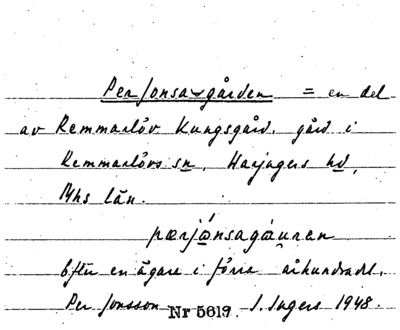 Per Jonsa-gården = en del
av Remmarlöv Kungsgård, gård i
Remmarlövs sn, Harjagers hd,
Mhs län.
pærjånsagåuren
Efter en ägare i förra århundradet,
Per Jonsson Nr 5619. I. Ingers 1948.